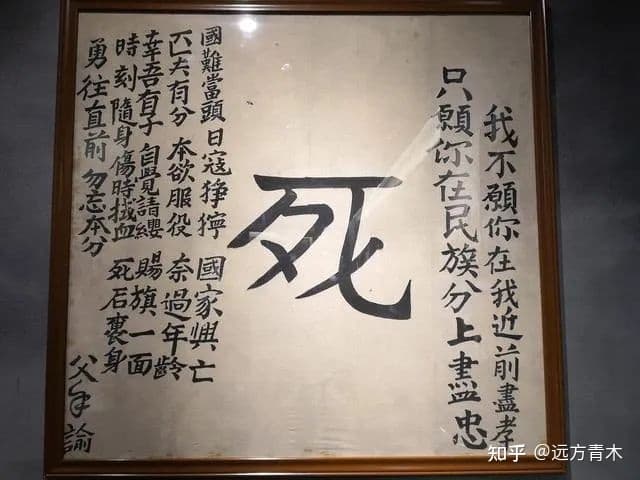 我不願你在我近前盡孝
只願你在民族分上盡忠
死
國難當頭 日寇猙獰 國家興亡
匹夫有分 本欲服役 奈過年齡
幸吾有子 自覺請纓 賜旗一面
時刻隨身 傷時拭血 死后裹身
勇往直前 勿忘本分
父手諭
知乎 @远方青木